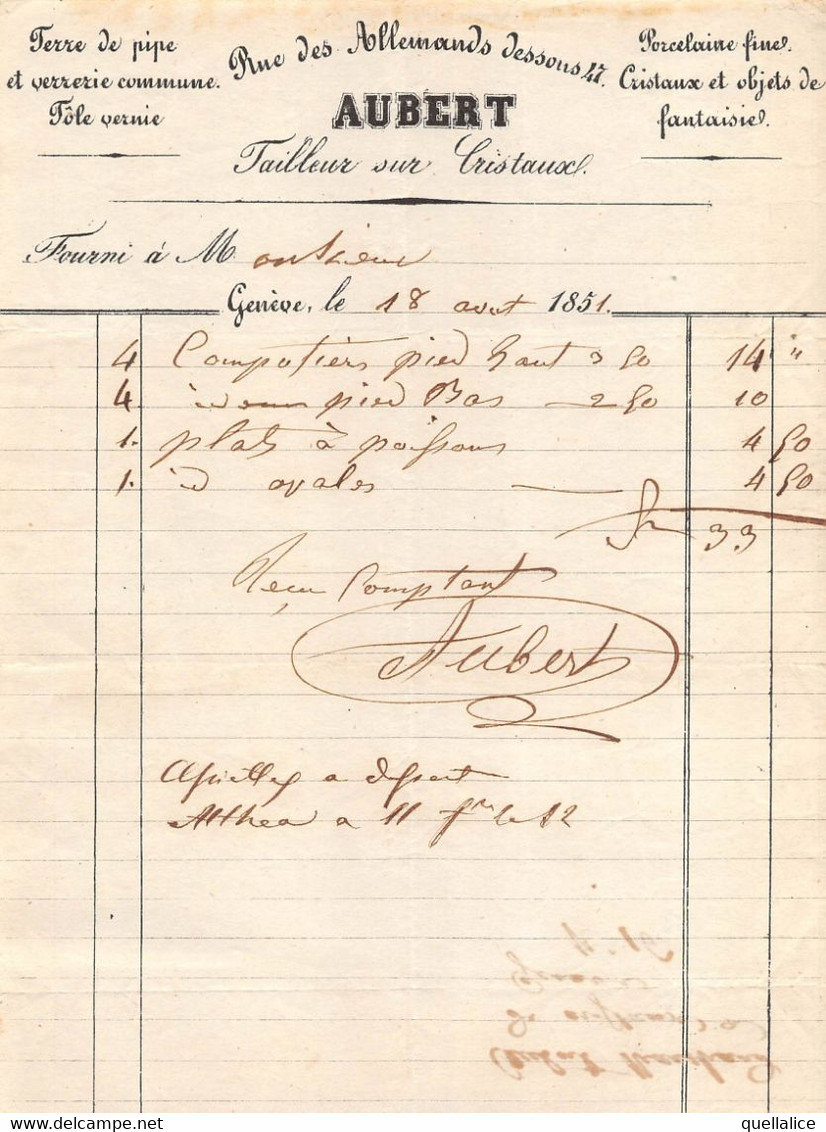 Terre de pipe
et verrerie commune.
Tôle vernie
Rue des Allemands dessous 47.
AUBERT
Tailleur sur Cristaux.
Porcelaine fine.
Cristaux et objets de
fantaisie.
Fourni à Monsieur
Genève, le 18 aout 1851.
4 Compotiers pied haut 3 50 14 "
4. idem pied Bas 2 50 10
1. plats à poissons 4 50
1. id ovales 4 50
fr 33
Reçu Comptant
Aubert
assiettes a dessert
Althea a 11 fr le 12
quellalice